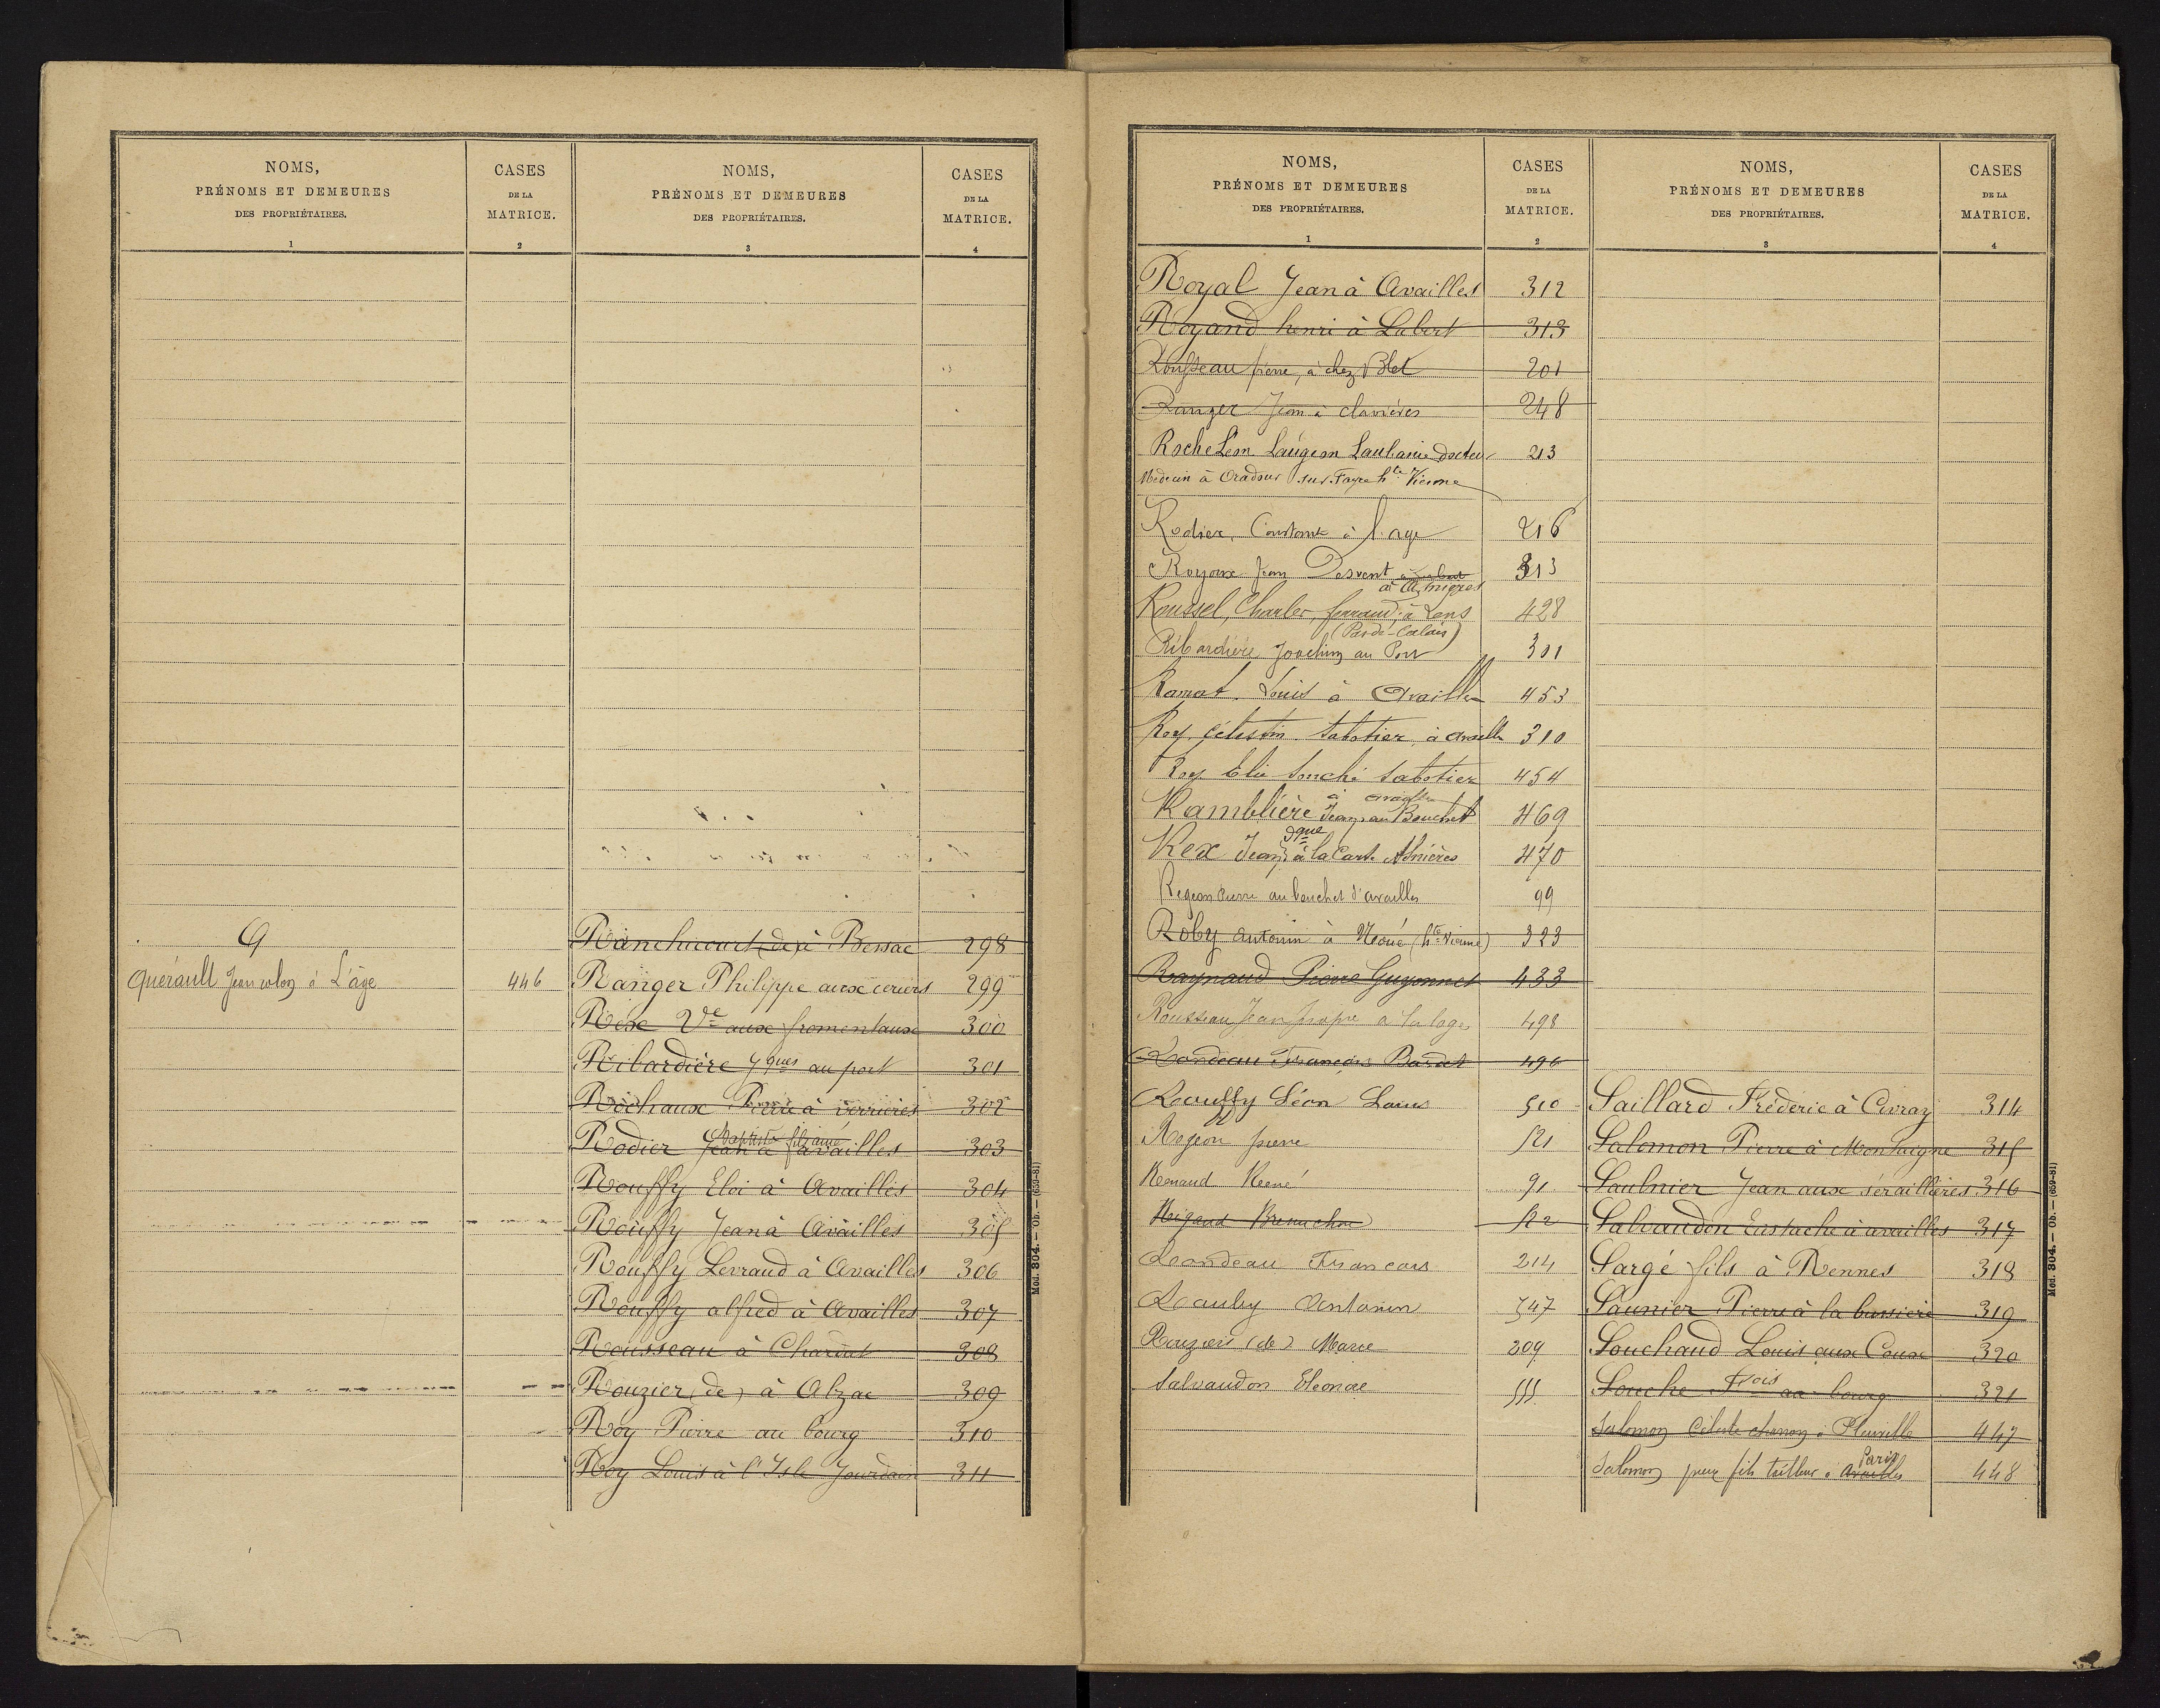 NOMS,
PRÉNOMS ET DEMEURES
DES PROPRIÉTAIRES.
1
CASES
DE LA
MATRICE.
2
NOMS,
PRÉNOMS ET DEMEURES
DES PROPRIÉTAIRES.
3
CASES
DE LA
MATRICE.
4
Q
Quérault Jean colon à L'âge 446
Ranchicourt (de) à Bessac 298
Ranger Philippe aux ceriers 299
Rex Ve aux fromentaux 300
Ribardière Jques au port 301
Rochaux Pierre à verrières 302
Baptiste fils ainé
Rodier Jean à availles 303
Rouffy Eloi à Availles 304
Rouffy Jean à Availles 305
Rouffy Levraud à Availles 306
Rouffy alfred à Availles 307
Rousseau à Chardat 308
Rouzier (de) à Abzac 309
Roy Pierre au bourg 310
Roy Louis à l'Isle Jourdain 311
Mod. 804. — Ob. — (659-81)
NOMS,
PRÉNOMS ET DEMEURES
DES PROPRIÉTAIRES.
1
CASES
DE LA
MATRICE.
2
NOMS,
PRÉNOMS ET DEMEURES
DES PROPRIÉTAIRES.
3
CASES
DE LA
MATRICE.
4
Royal Jean à Availles 312
Royand henri à Lubert 313
Rousseau pierre, à chez Blet 201
Ranger Jean à clavières 248
Roche Léon Laugeon Laulanie docteur 213
Médecin à Oradour sur Fayre hte Vienne
Rodier, Constant à l'age 216
Royoux Jean Desvent 313
à Asnières
Roussel, Charles, ferrand, à Lens 428
(Pas de-Calais)
Ribardière Joachim au Port 301
Ramat Louis à Availles 453
Roy célestin sabotier à availles 310
Roy Elie Souché sabotier 454
à availles
Ramblière Jean au Bouchet 469
dque
Rex Jean à la Carte Asnières 470
Regeon Pierre au bouchet d'availles 99
Roby Antonin à Noué (hte Vienne) 323
Raynaud Pierre Guyonnet 433
Rousseau Jean propre à la loge 498
Rondeau François Bardet 496
Rouffy Léon Louis 510
Rejeon pierre 521
Renaud René 91
Rigaud Breuchon 522
Rondeau Francois 214
Rouby Antonin 547
Rouziers (de) Marie 209
Salvaudon Eleonore 555
Saillard Fréderic à Civray 314
Salomon Pierre à Montaigne 315
Saulnier Jean aux séraillières 316
Salvaudon Eustache à availles 317
Sargé fils à Rennes 318
Saunier Pierre à la bussière 319
Souchaud Louis aux Coux 320
Souche Frois au bourg 321
Salomon Céleste à Pleuville 447
Paris
Salomon fils tailleur à Availles 448
Mod. 804. — Ob. — (659-81)